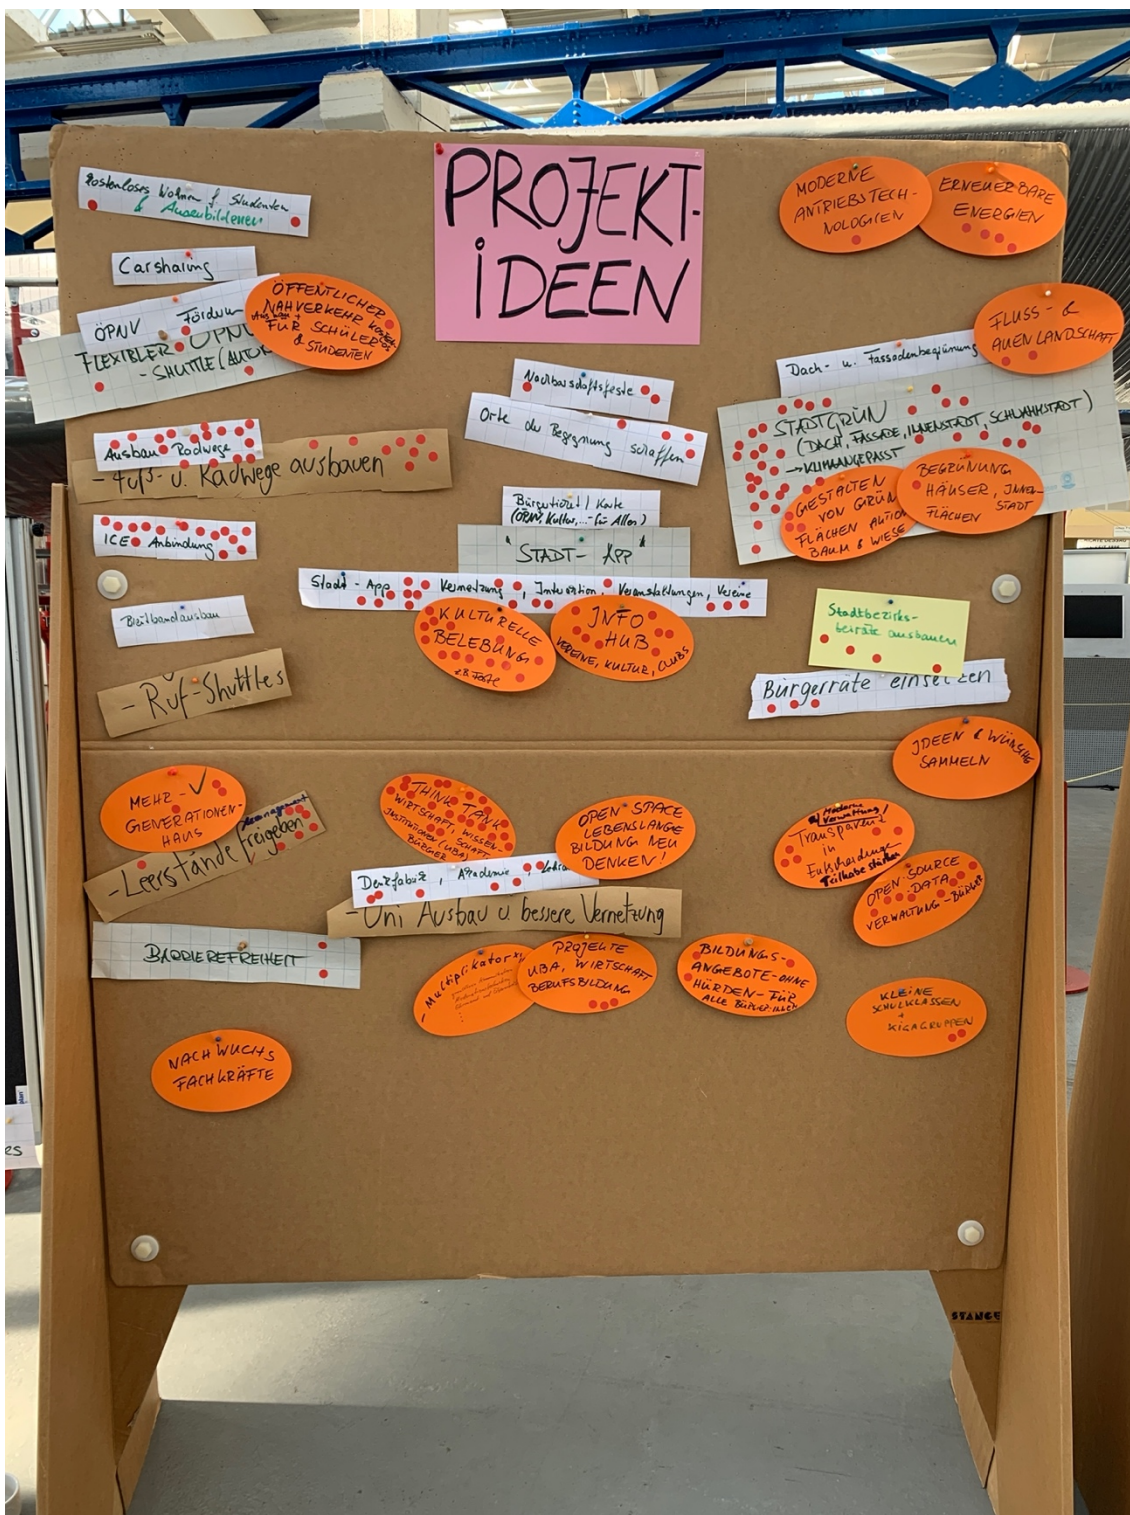 PROJEKT-
IDEEN
Kostenloses Wohnen f. Studenten
& Auszubildene
Carsharing
ÖPNV
FLEXIBLER ÖPNV
- SHUTTLE (AUTON
ÖFFENTLICHER
NAHVERKEHR
FÜR SCHÜLER
& STUDENTEN
Ausbau Radwege
- Fuß- u. Radwege ausbauen
ICE Anbindung
Breitbandausbau
- Ruf-Shuttles
Nachbarschaftsfeste
Orte der Begegnung schaffen
Bürgerticket / Karte
(ÖPNV, Kultur, ... - für Allen)
"STADT-APP"
Stadt-App Vernetzung, Interaktion, Veranstaltungen, Vereine
KULTURELLE
BELEBUNG
z.B. Feste
INFO
HUB
VEREINE, KULTUR, CLUBS
MODERNE
ANTRIEBSTECH-
NOLOGIEN
ERNEUERBARE
ENERGIEN
FLUSS- &
AUENLANDSCHAFT
Dach- u. Fassadenbegrünung
STADTGRÜN
(DACH, FASSADE, INNENSTADT, SCHWAMMSTADT)
→ KLIMAANGEPASST
GESTALTEN
VON GRÜN
FLÄCHEN AKTION
BAUM & WIESE
BEGRÜNUNG
HÄUSER, INNEN-
STADT
FLÄCHEN
Stadtbezirks-
beiräte ausbauen
Bürgerräte einsetzen
IDEEN & WÜNSCHE
SAMMELN
MEHR-
GENERATIONEN-
HAUS
- Leerstände freigeben
BARRIEREFREIHEIT
NACHWUCHS
FACHKRÄFTE
THINK TANK
WIRTSCHAFT, WISSEN-
SCHAFT
INSTITUTIONEN (UBA)
BÜRGER
Denkfabrik, Akademie,
- Uni Ausbau u. bessere Vernetzung
OPEN SPACE
LEBENSLANGE
BILDUNG NEU
DENKEN!
PROJEKTE
UBA, WIRTSCHAFT
BERUFSBILDUNG
BILDUNGS-
ANGEBOTE-OHNE
HÜRDEN-FÜR
ALLE BÜRGER:INNEN
Moderne
Verwaltung!
Transparenz
in
Entscheidungen
Teilhabe stärken
OPEN SOURCE
DATA
VERWALTUNG-BÜRGER
KLEINE
SCHULKLASSEN
+
KIGAGRUPPEN
STANGE